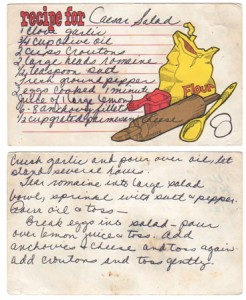 recipe for Caesar Salad
1 clove garlic
3/4 cup olive oil
2 cups croutons
2 large heads romaine
1/2 teaspoon salt
Fresh ground pepper
2 eggs cooked 1 minute
juice of 1 large lemon
6-8 anchovy fillets
1/2 cup grated parmesan cheese
Flour
Crush garlic and pour over oil, let
stand several hours.
Tear romaine into large salad
bowl, sprinkle with salt & pepper.
Pour oil & toss.
Break eggs into salad - pour
over lemon juice & toss. Add
anchovies & cheese and toss again.
add croutons and toss gently.